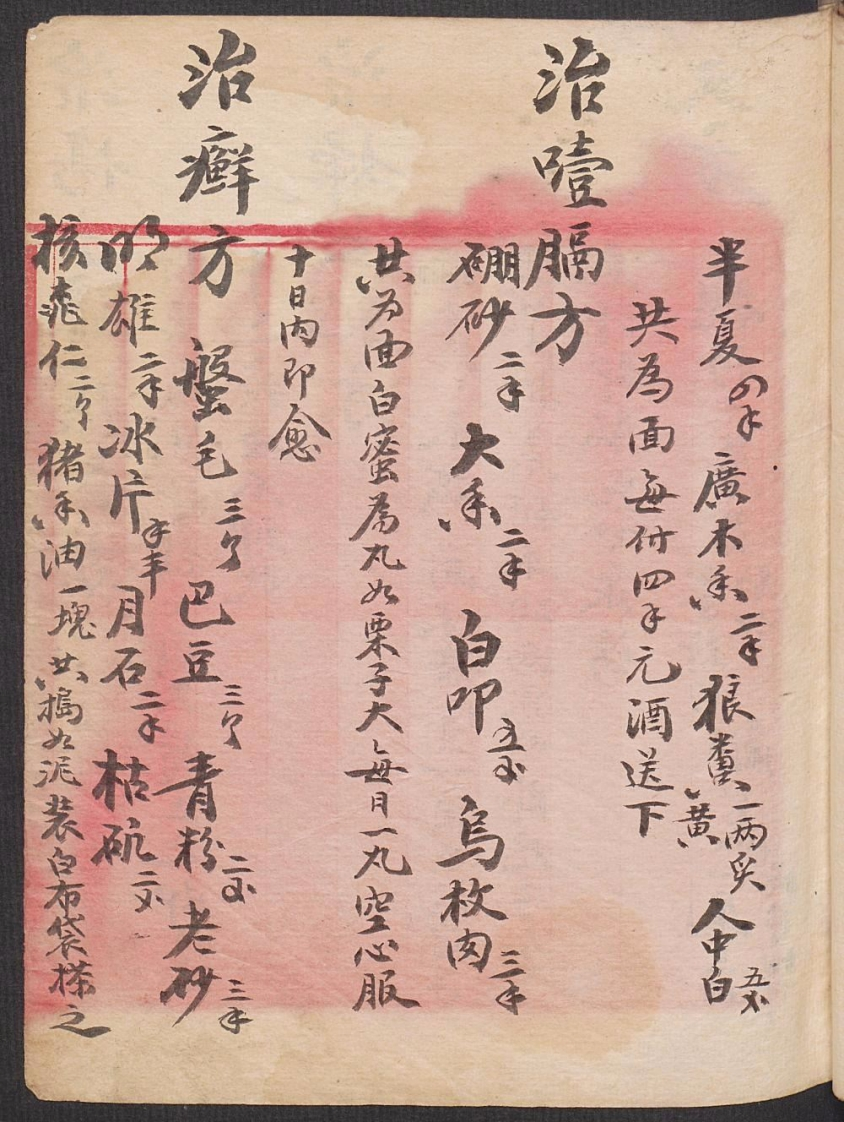 半夏四子 廣木香二子 狼糞一両炙黄 人中白五分
共為面每付四子元酒送下
治噎膈方
硼砂二子 大香二子 白叩五分 烏枚肉三子
共为面白蜜為丸如栗子大每日一丸空心服
十日内即愈
治癬方 盤毛三个 巴豆三个 青粉二分 老砂三子
明雄二子 冰片子半 月石二子 枯矾二分
核桃仁二个 猪香油一塊共搗如泥装白布袋搽之